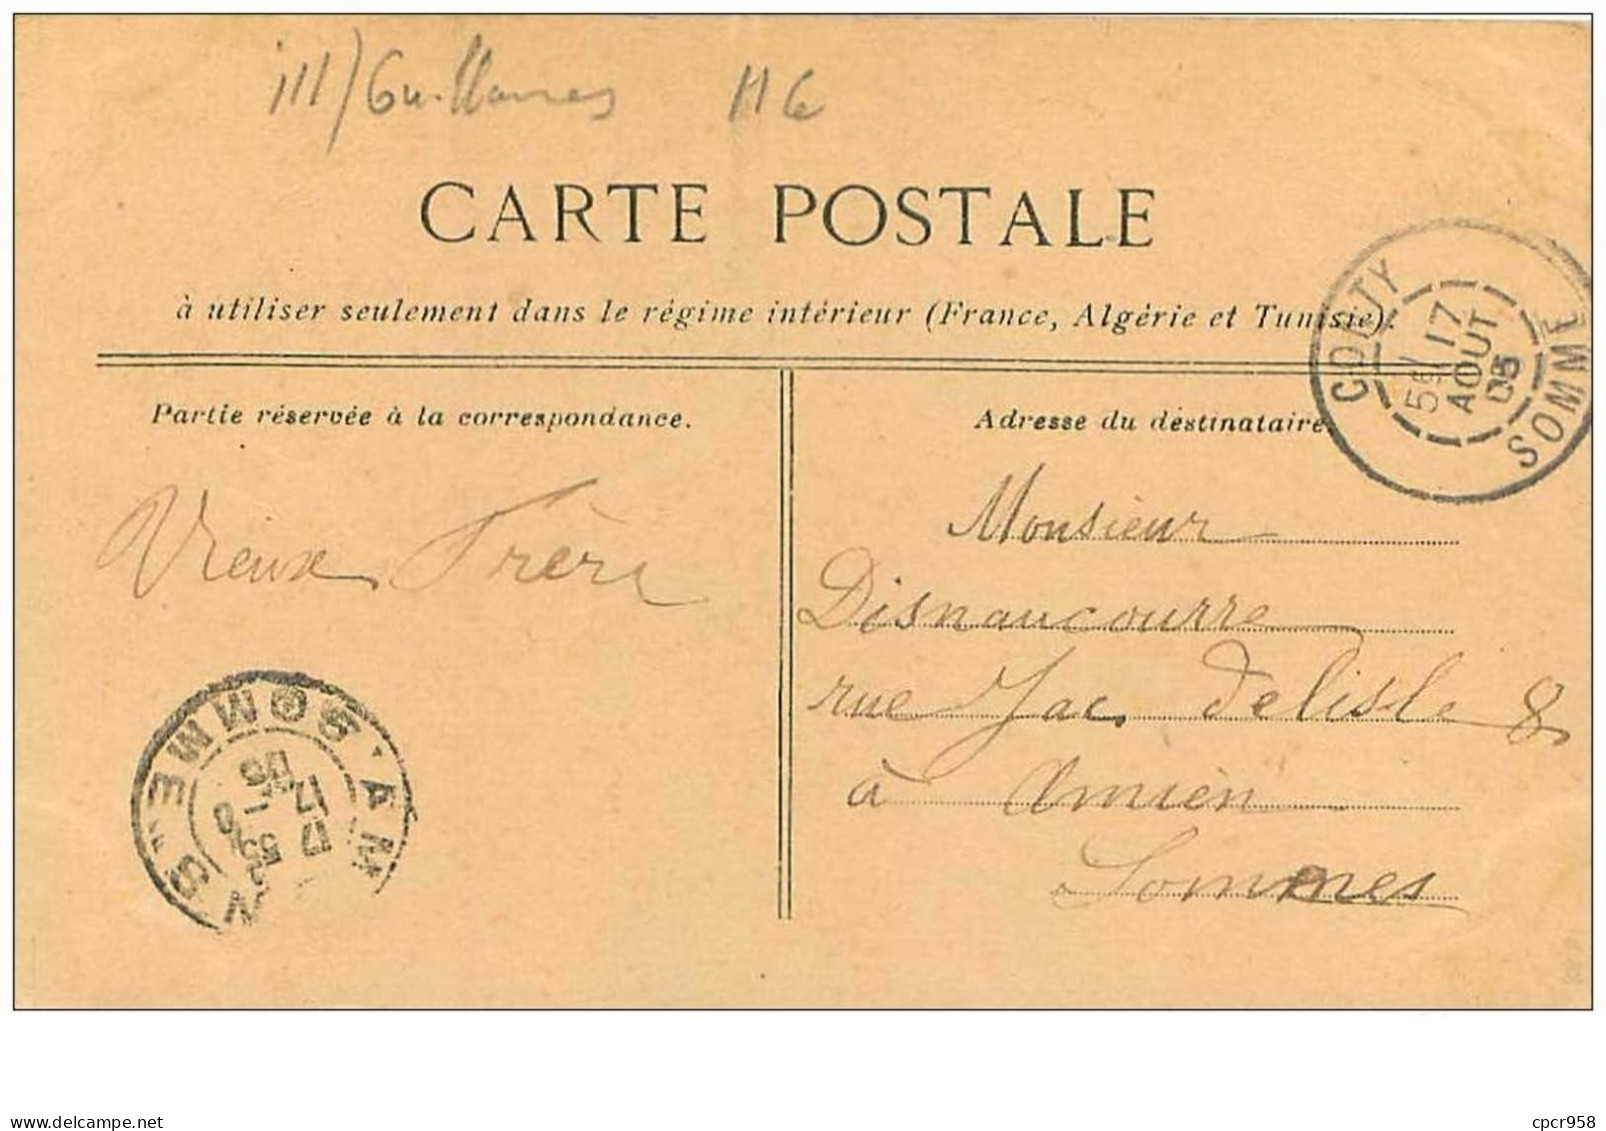 ill) Guillaumes H6
CARTE POSTALE
à utiliser seulement dans le régime intérieur (France, Algérie et Tunisie).
CONTY
5E 17
AOUT
05
SOMME
Partie réservée à la correspondance.
Adresse du destinataire.
Vieux Frère
Monsieur
Disnaucourre
rue Jac Delisle 8
à Amien
Sommes
SOMME
17
05
delcampe.net
cpcr958